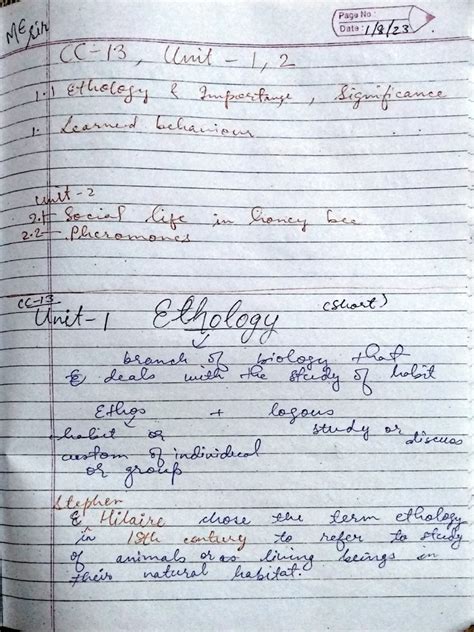 Page No :
Date : 1/8/23
CC-13, Unit - 1, 2
1.1 Ethology & Importance, Significance
1. Learned behaviour
Unit - 2
2.1 Social life in honey bee
2.2 Pheromones
CC-13
Unit-1 Ethology (short)
branch of biology that
deals with the study of habit
Ethos + logous
habit or study or discuss
custom of individual
or group
Stephen
Hilaire chose the term ethology
in 18th century to refer to study
of animals or living beings in
their natural habitat.